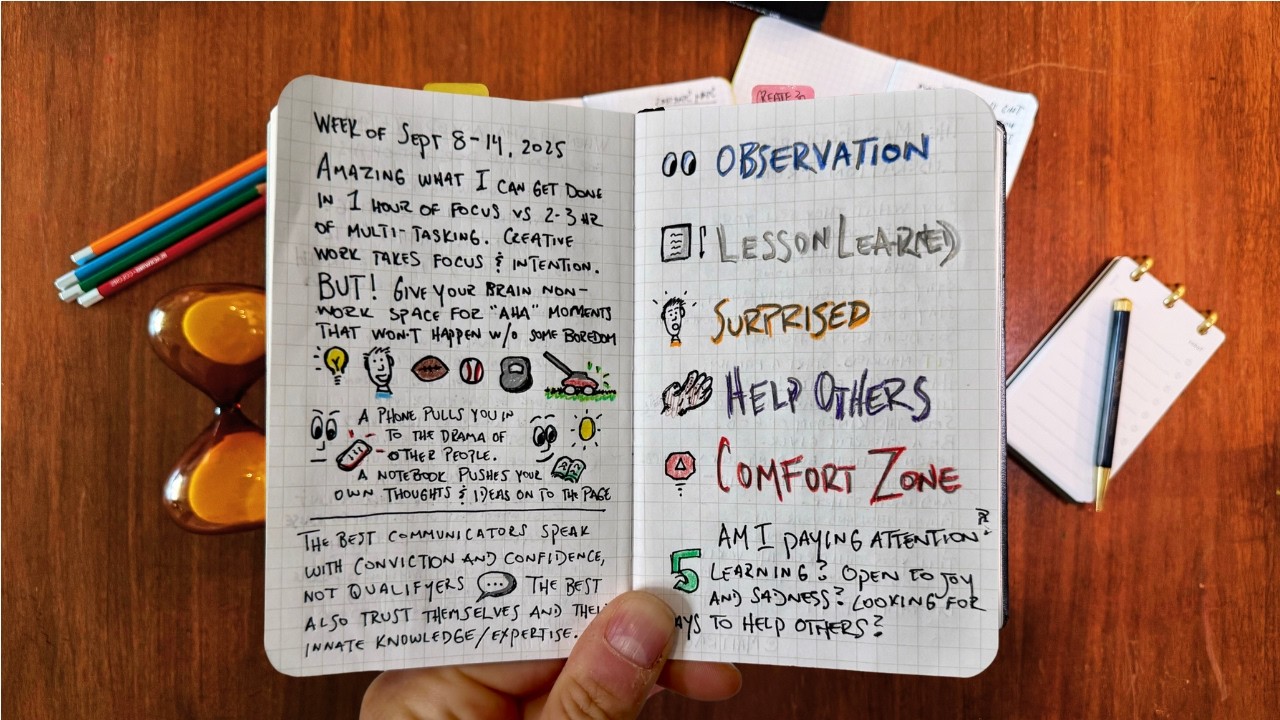 WEEK OF SEPT 8-14, 2025
AMAZING WHAT I CAN GET DONE
IN 1 HOUR OF FOCUS VS 2-3 HR
OF MULTI-TASKING. CREATIVE
WORK TAKES FOCUS & INTENTION.
BUT! GIVE YOUR BRAIN NON-
WORK SPACE FOR "AHA" MOMENTS
THAT WON'T HAPPEN W/O SOME BOREDOM
A PHONE PULLS YOU IN
TO THE DRAMA OF
OTHER PEOPLE.
A NOTEBOOK PUSHES YOUR
OWN THOUGHTS & IDEAS ON TO THE PAGE
THE BEST COMMUNICATORS SPEAK
WITH CONVICTION AND CONFIDENCE,
NOT QUALIFYERS THE BEST
ALSO TRUST THEMSELVES AND
INNATE KNOWLEDGE/EXPERTISE.
CREATE 30
OBSERVATION
LESSON LEARNED
SURPRISED
HELP OTHERS
COMFORT ZONE
5
AM I PAYING ATTENTION?
LEARNING? OPEN TO JOY
AND SADNESS? LOOKING FOR
TO HELP OTHERS?